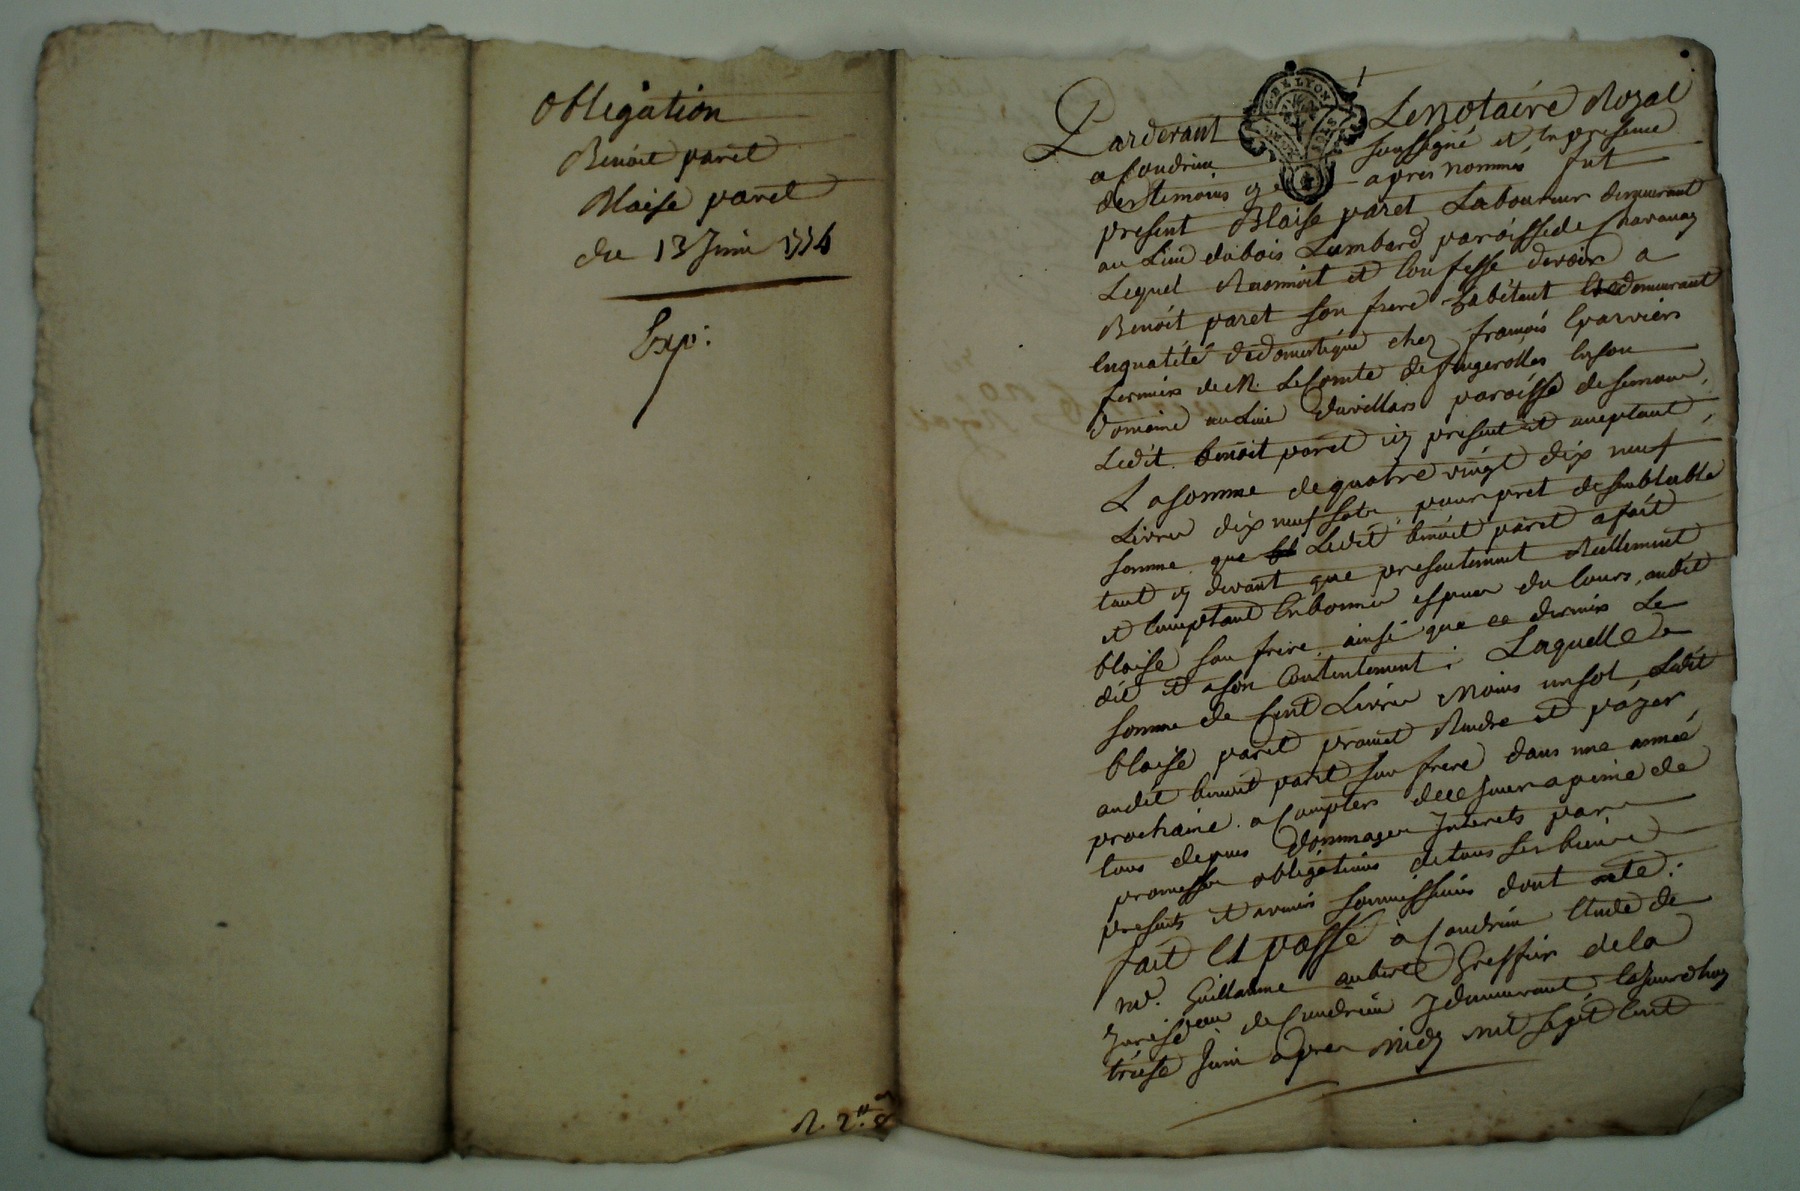 obligation
Benoit paret
Blaise paret
du 13 Juin
Exp:
Pardevant Le Notaire Royal
a Condrieu soussigné et en presence
des temoins cy apres nommés, fut
present Blaise paret Laboureur demeurant
au Lieu dubois Lombard paroisse de Chavanay
Lequel Reconnoit et Confesse devoir a
Benoit paret son frere habitant demeurant
en qualité de domestique chez françois Eparvier
fermier de M. Le Comte de fougerolles en son
domaine au Lieu duvillars paroisse de
Ledit benoit paret icy present et acceptant,
La somme de quatre vingt dix neuf
Livres dix neuf sols pour pret de semblable
somme que Ledit benoit paret a fait
tant cy devant que presentement Réellement
et Comptant En bonnes especes du Cours, audit
blaise son frere ainsi que ce dernier Le
dit et a son Contentement; Laquelle
somme de Cent Livres Moins un sol, Ledit
blaise paret promet Rendre et payer,
audit benoit paret son frere dans une année
prochaine a Compter de ce jour a peine de
tous depens dommages Interets par
promesses obligations de tous ses biens
presents et avenir soumissions dont acte:
fait et passé à Condrieu Etude de
me. Guillaume aubert Greffier de la
Jurisdon de Condrieu y demeurant, Cejourdhuy
treise Juin apres Midy mil sept Cent
R. 2.
G. DE LYON